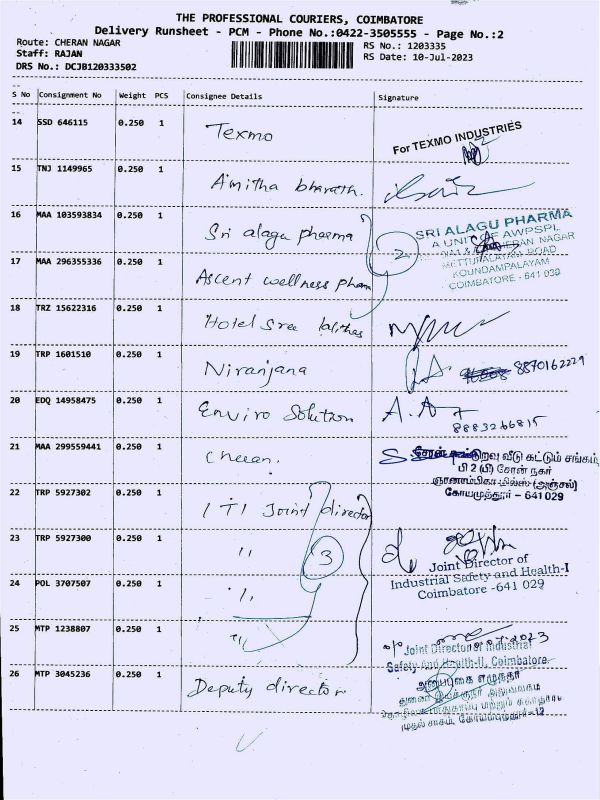 THE PROFESSIONAL COURIERS, COIMBATORE
Delivery Runsheet - PCM - Phone No.:0422-3505555 - Page No.:2
Route: CHERAN NAGAR RS No.: 1203335
Staff: RAJAN RS Date: 10-Jul-2023
DRS No.: DCJB120333502
S No Consignment No Weight PCS Consignee Details Signature
14 SSD 646115 0.250 1 Texmo For TEXMO INDUSTRIES
15 TNJ 1149965 0.250 1 Amitha bharath.
16 MAA 103593834 0.250 1 Sri alagu pharma
SRI ALAGU PHARMA
A UNIT OF AWPSPL
CHERAN NAGAR
METTUPALAYAM ROAD
KOUNDAMPALAYAM
COIMBATORE - 641 030
2
17 MAA 296355336 0.250 1 Ascent wellness pharm
18 TRZ 15622316 0.250 1 Hotel Sree lalithas
19 TRP 1601510 0.250 1 Niranjana 8870162229
20 EDQ 14958475 0.250 1 Enviro Solution
8883266815
21 MAA 299559441 0.250 1 Cheean.
வீடு கட்டும் சங்கம்,
பி 2 (பி) சேரன் நகர்
(அஞ்சல்)
கோயமுத்தூர் - 641 029
22 TRP 5927302 0.250 1 I T I Joint director
23 TRP 5927300 0.250 1 "
3
Joint Director of
Industrial Safety and Health-I
Coimbatore -641 029
24 POL 3707507 0.250 1 "
25 MTP 1238807 0.250 1 "
o/o Joint Director of Industrial
Safety And Health-II, Coimbatore.
26 MTP 3045236 0.250 1 Deputy director